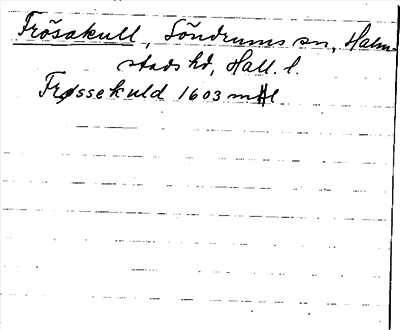 Frösakull, Söndrums sn, Halm-
stads hd, Hall. l.
Frøssekuld 1603 mHl